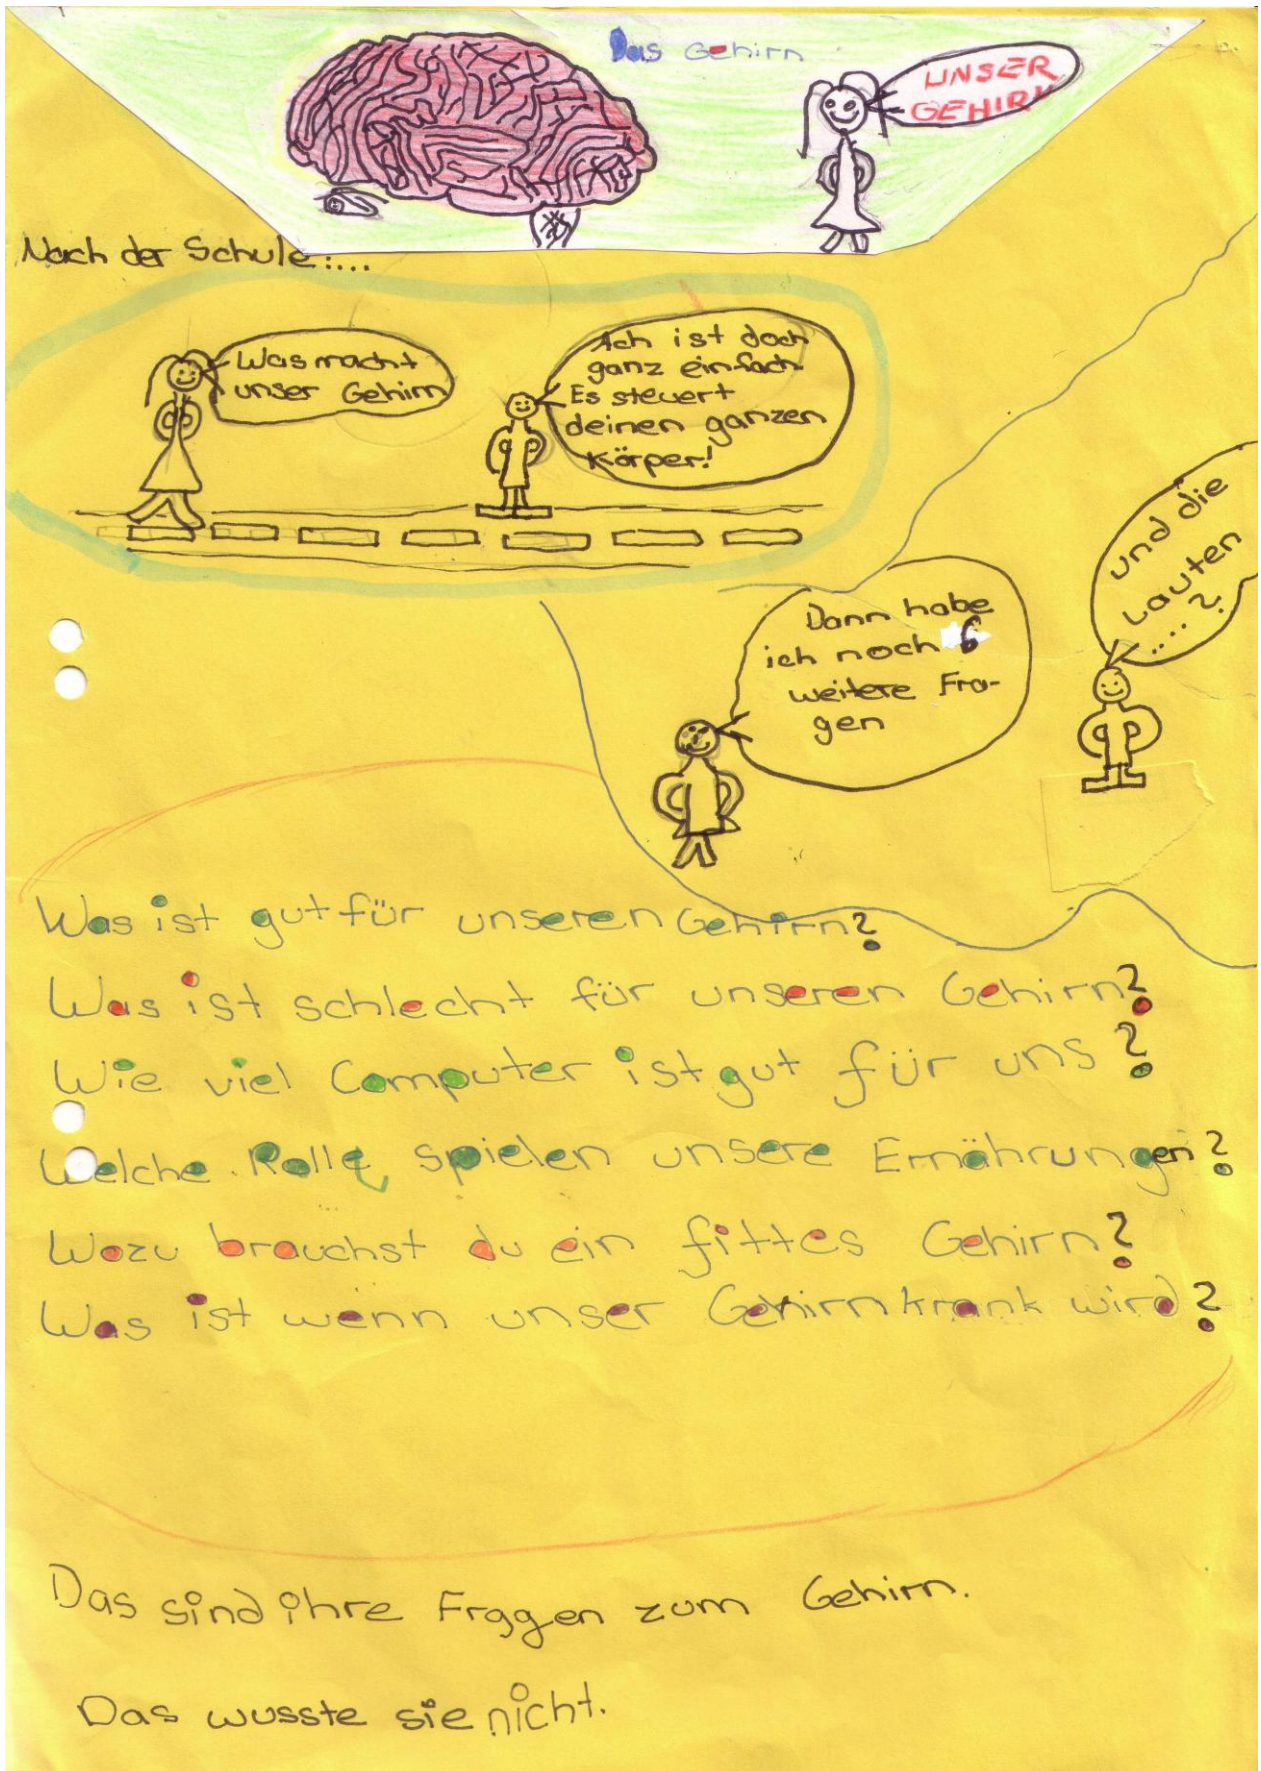 Das Gehirn
UNSER
GEHIRN
Nach der Schule:...
Was macht
unser Gehirn
Ach ist doch
ganz einfach
Es steuert
deinen ganzen
Körper!
Dann habe
ich noch 6
weitere Fra-
gen
und die
Lauten
....?
Was ist gut für unseren Gehirn?
Was ist schlecht für unseren Gehirn?
Wie viel Computer ist gut für uns?
Welche Rolle spielen unsere Ernährungen?
Wozu brauchst du ein fittes Gehirn?
Was ist wenn unser Gehirn krank wird?
Das sind ihre Fragen zum Gehirn.
Das wusste sie nicht.